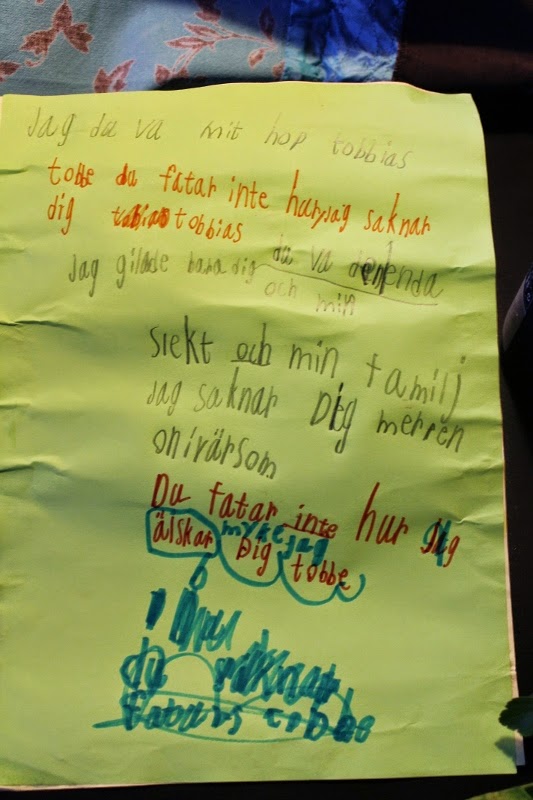 Jag du va mit hop tobbias
tobbe du fatar inte hur jag saknar
dig tobbias
Jag gilade bara dig du va den enda
och min
slekt och min familj
jag saknar Dig merren
onivärsom
Du fatar inte hur jag
älskar myke jag
Dig tobbe
du